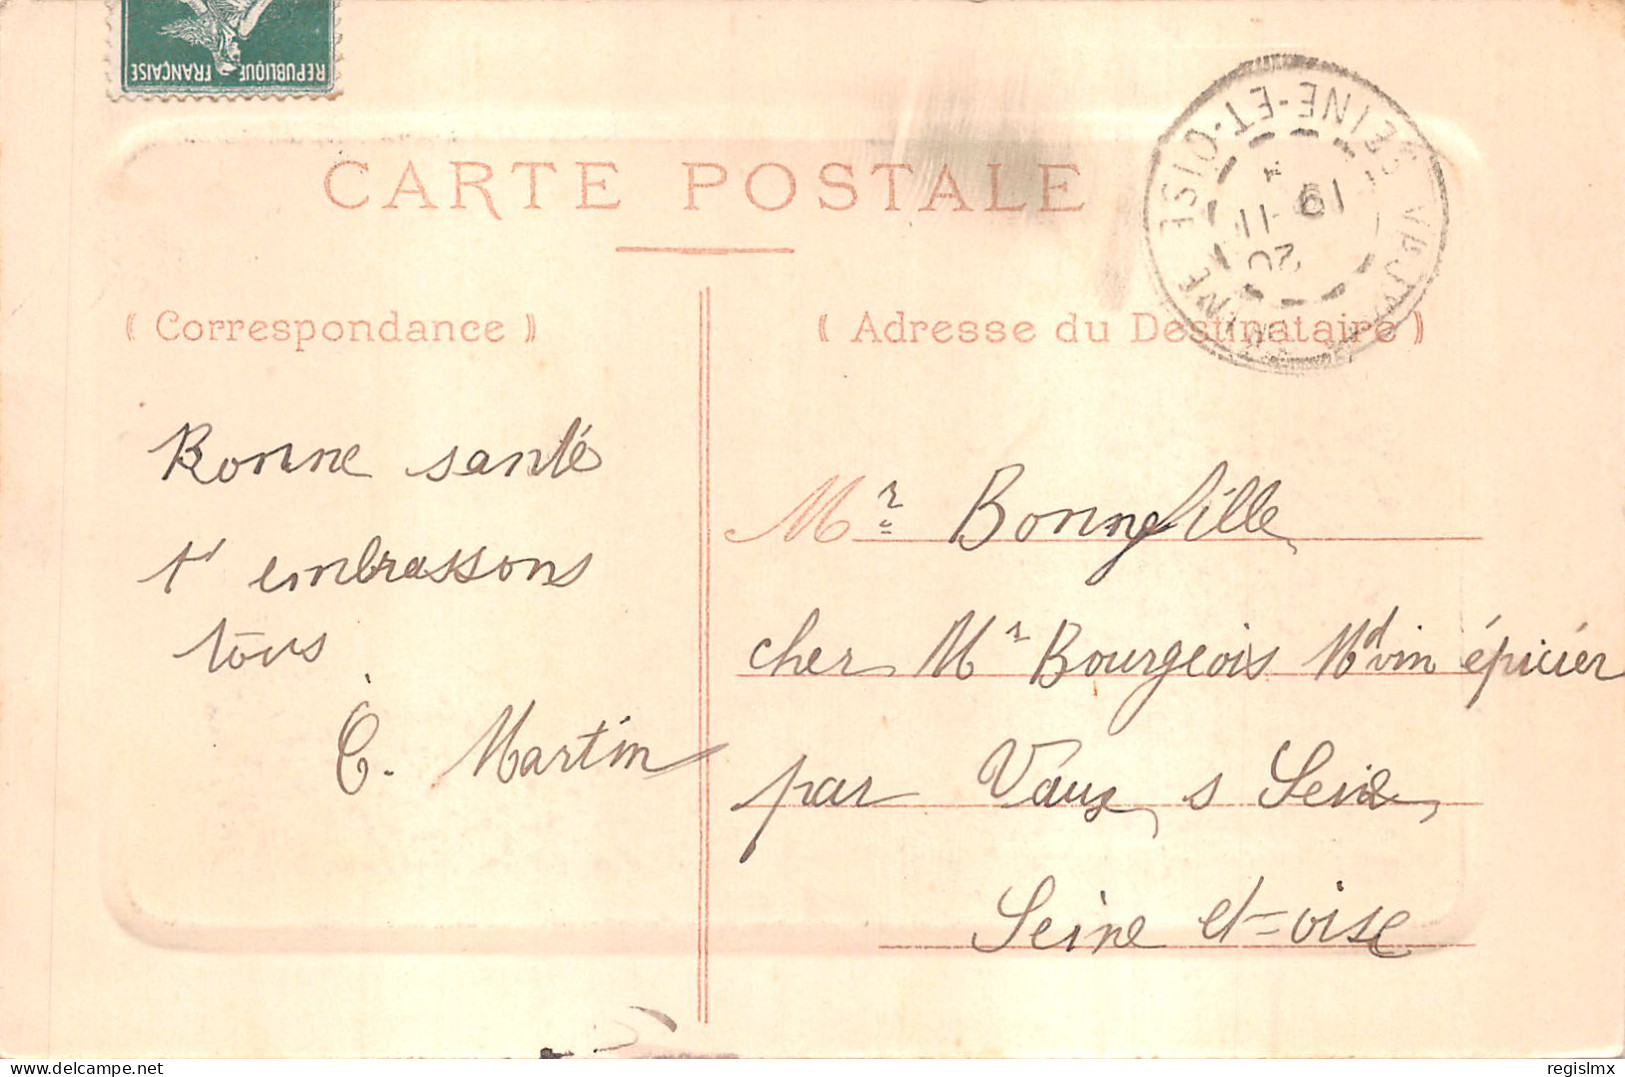 REPUBLIQUE FRANÇAISE
SEINE-ET-OISE
19
-11
20
CARTE POSTALE
( Correspondance )
( Adresse du Destinataire )
Bonne santé
t' embrassons
tous
C. Martin
Mr Bonnefille
cher Mr Bourgeois Md vin épicier
par Vaux s Seine
Seine et=oise
delcampe.net
regislmx